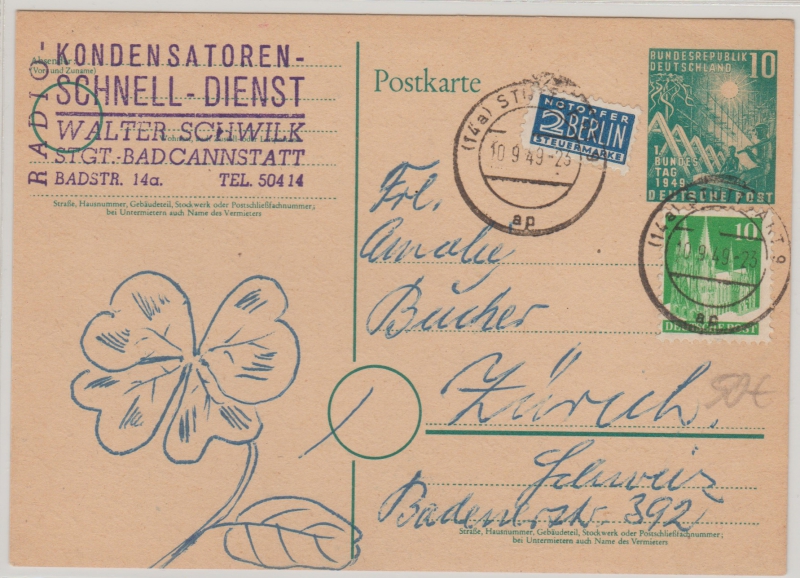 RADIO-
KONDENSATOREN-
SCHNELL-DIENST
WALTER SCHWILK
STGT.-BAD CANNSTATT
BADSTR. 14a. TEL. 50414
Absender:
(Vor- und Zuname)
Straße, Hausnummer, Gebäudeteil, Stockwerk oder Postschließfachnummer;
bei Untermietern auch Name des Vermieters
Postkarte
(14a) STU
10.9.49-23
ap
NOTOPFER
2 BERLIN
STEUERMARKE
BUNDESREPUBLIK 10
DEUTSCHLAND
1.
BUNDES
TAG
1949
DEUTSCHE POST
(14a) ART 9
10.9.49-23
ap
10
DEUTSCHE POST
Frl.
Amaly
Bücher
Zürich.
50€
Schweiz
Badenerstr. 392
Straße, Hausnummer, Gebäudeteil, Stockwerk oder Postschließfachnummer;
bei Untermietern auch Name des Vermieters